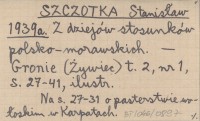 SZCZOTKA Stanisław
1939a. Z dziejów stosunków
polsko-morawskich. —
Gronie (Żywiec) t. 2, nr 1,
s. 27-41, ilustr.
Na s. 27-31 o pasterstwie wo-
łoskim w Karpatach.